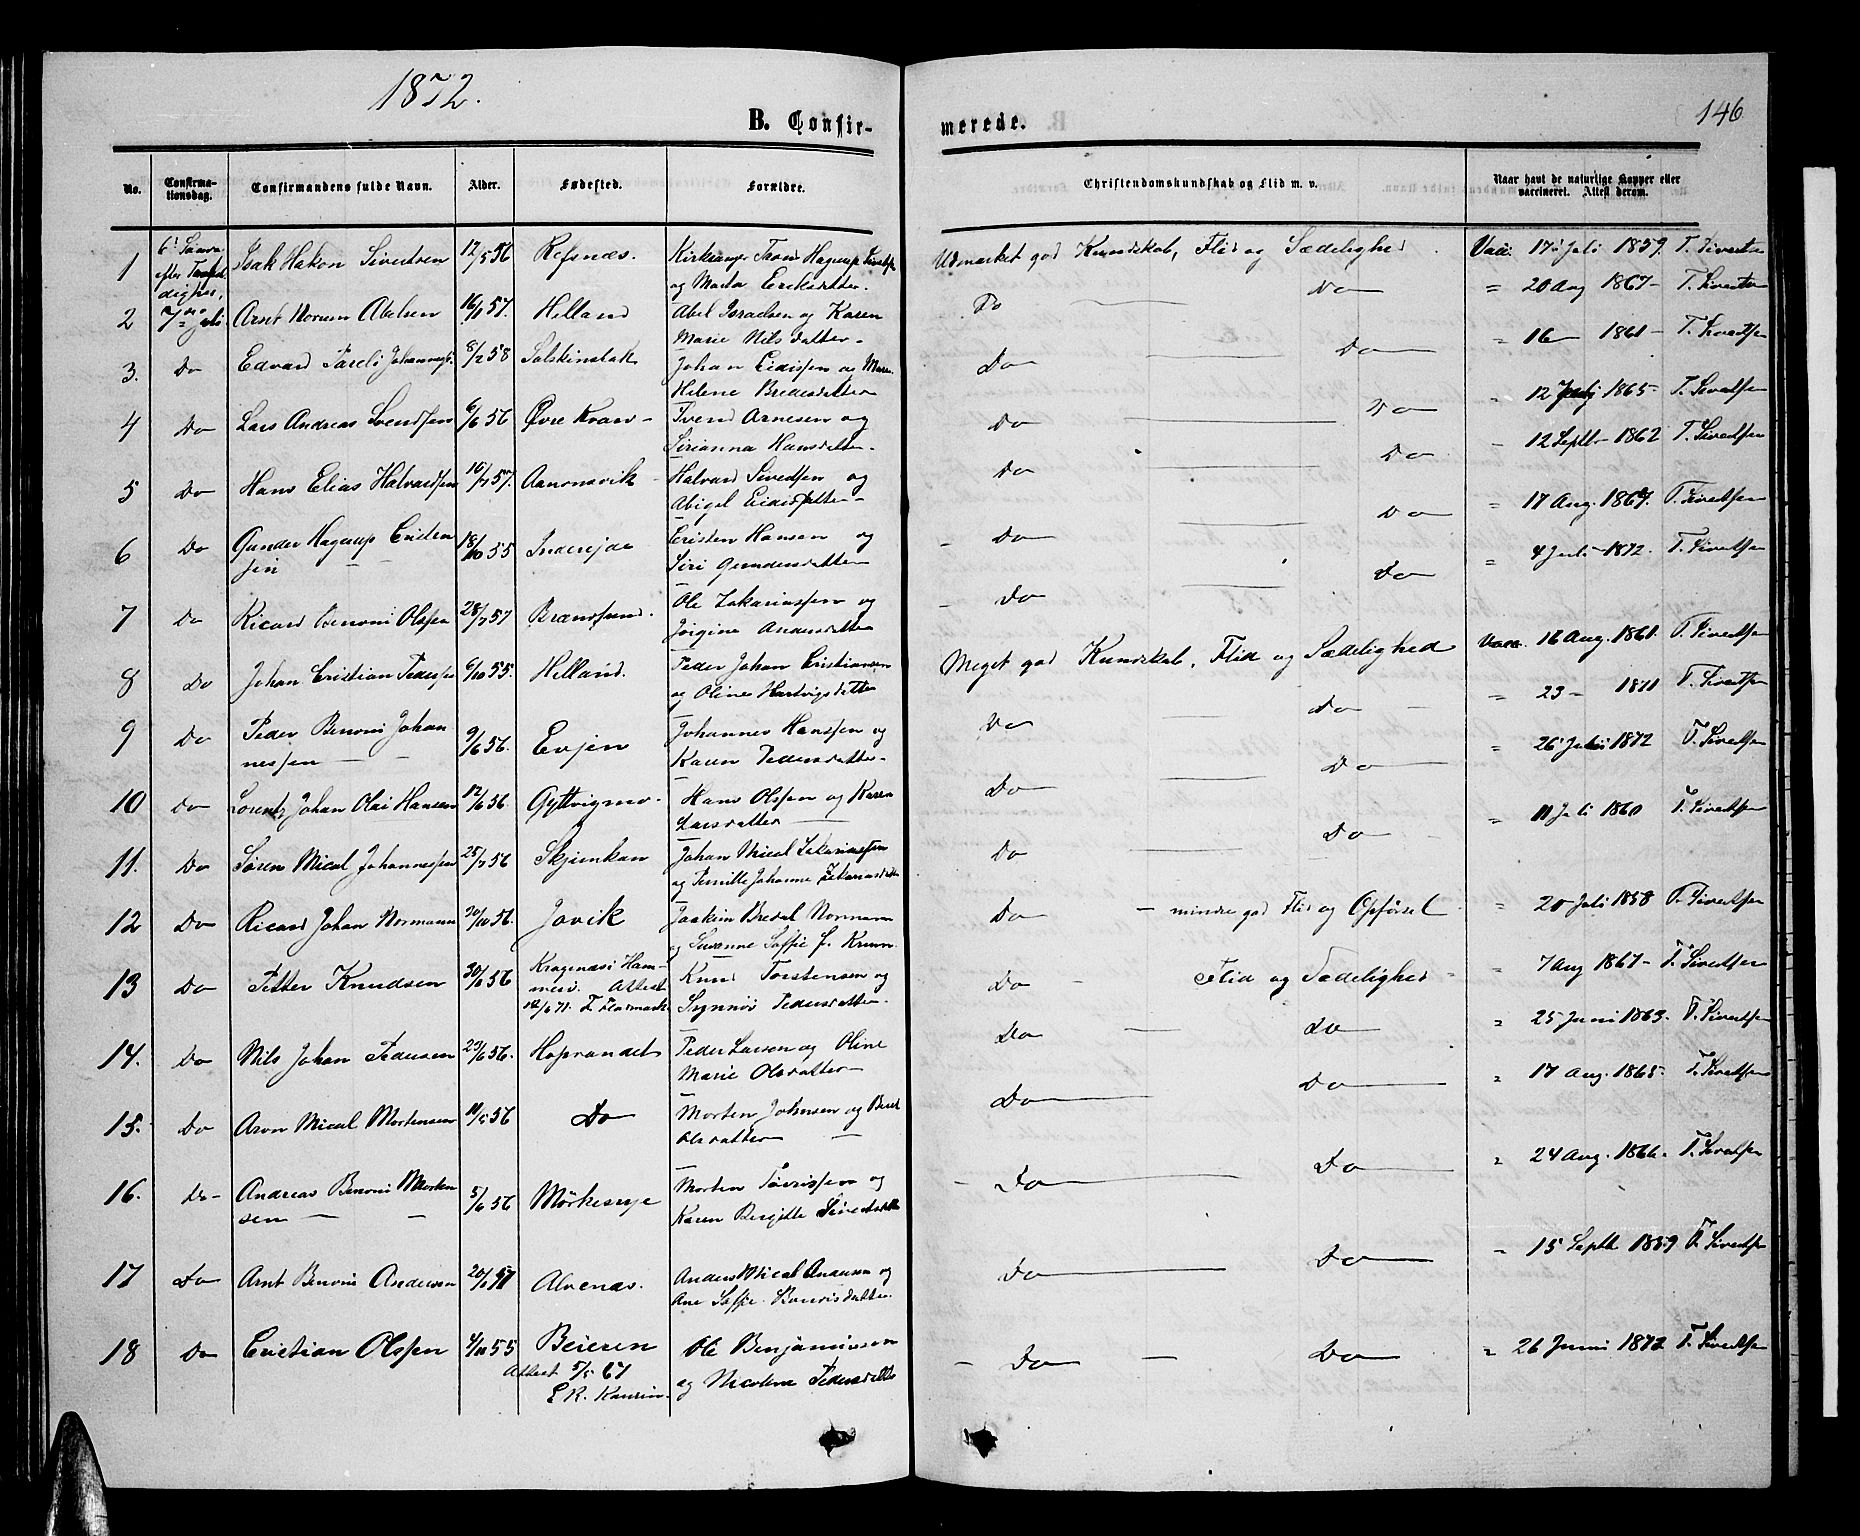 1872.
146
B. Confir-
merede.
No.
Confirma-
tionsdag.
Confirmandens fulde Navn.
Alder.
Fødested.
Forældre.
Christendomskundskab og Flid m. v.
Naar havt de naturlige Kopper eller
vaccineret. Attest derom.
1
efter
Isak Hakon Sivertsen
12/5 56
Refsnæs.
Kirkesanger Hagerup
og Marta Ericksdatter.
Udmærket god Kundskab, Flid og Sædelighed
Vacc. 17 Juli 1859. T. Sivertsen
2
7 Juli
Arnt Norum Abelsen
57.
Helland
Abel Israelsen og Karen
Marie Nilsdatter
Do
Do
" 20 Aug 1867 - T. Sivertsen
3.
Do
Edvard Johannes
8/2 58
Solskinsbak
Johan Eidissen og
Helene Bredesdatter
Do
Do
" 16 — 1861 - T. Sivertsen
4
Do
Lars Andreas Svendsen
6/6 56
Øvre Kvarv -
Svend Arnesen og
Sirianna Hansdatter.
Do
Do
" 12 1865 - T. Sivertsen
5
Do
Hans Elias Halvardsen
57.
Aanonsvik
Halvard Sivertsen og
Abigel Eidisdatter -
Do
Do
" 12 Septb 1862 T. Sivertsen
6
Do
Gunder Hagerup Cristen
sen
18/10 55
Cristen Hansen og
Siri Gundersdatter
- Do
Do
" 17 Aug. 1867. T. Sivertsen
7
Do
Ricard Benoni Olssen
28/7 57
Brandsund.
Ole Zakariassen og
Jørgine Andersdatter
- Do
Do
" 4 Juli 1872. T. Sivertsen
8
Do
Johan Cristian Pedersen
6/10 55.
Helland.
Peder Johan Cristiansen
og Oline Hartvigsdatter
Meget god Kundskab, Flid og Sædelighed
Vacc. 16 Aug. 1861. T. Sivertsen
9
Do
Peder Benoni Johan
nessen
9/6 56.
Evjen
Johannes Hanssen og
Karen Pedersdatter.
Do
Do
" 23 - 1871 T. Sivertsen
10
Do
Lorents Johan Olai Hansen
12/6 56.
Gyltvigmo.
Hans Olssen og Karen
Larsdatter
Do
Do
" 26 Juli 1872 T. Sivertsen
11.
Do
Søren Mical Johannessen
25/7 56
Skjemkan
Johan Mical Zekariassen
og Pernille Johanne Zekariasdatter
Do
Do
" 11 Juli 1860 T. Sivertsen
12
Do
Ricard Johan Normann
56.
Jovik
Joakim Bredal Normann
og Susanne Soffie f. Krum
Do
- mindre god Flid og Opførsel
" 20 Juli 1858 T. Sivertsen
13
Do
Petter Knudsen
56
Kragenæs i Ham-
merv. Attest
Knud Torstensen og
Synnøv Pedersdatter.
Do
Flid og Sædelighed
" 7 Aug 1867 - T. Sivertsen
14.
Do
Nils Johan Pedersen
23/6 56.
Hoprandet
Peder Larsen og Oline
Marie Olsdatter
Do
do
" 25 Juni 1863. T. Sivertsen
15.
Do
Aron Mical Mortensen
11/5 56
Do
Morten Johnsen og Beret
Olsdatter
Do
Do
" 17 Aug. 1865 - T. Sivertsen
16.
Do
Andreas Benoni Morten
sen
5/6 56
Mørkesvye
Morten og
Karen Birgitte Sivertsdatter
- Do
Do
" 24 Aug. 1866. T. Sivertsen
17
Do
Arnt Benoni Andersen
57
Alvenæs.
Anders Mical Andersen og
Ane Soffie
Do
Do
" 15 Septb 1859 T. Sivertsen
18
Do
Cristian Olssen
55
Beieren
Attest 5/5 67
Ole Benjaminsen
og Nicoline Pedersdatter
- Do
Do
" 26 Juni 1872 T. Sivertsen